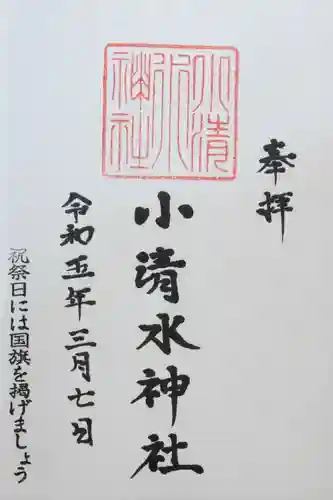 奉拝
小清水神社
小清水神社
令和五年三月七日
祝祭日には国旗を掲げましょう